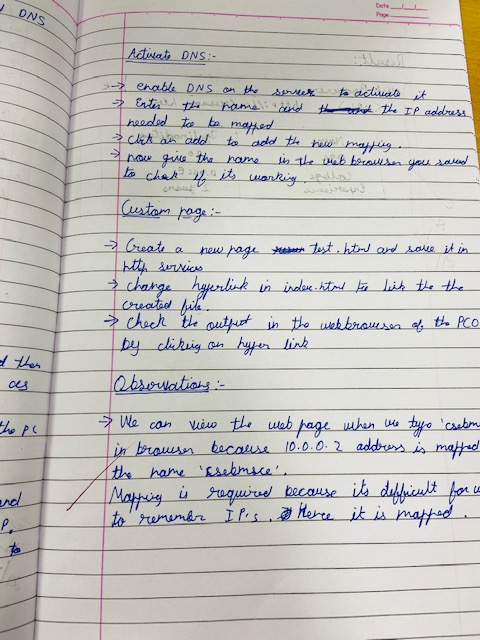 DNS
Date
Page
Activate DNS:-
→ enable DNS on the server to activate it
→ Enter the name and the IP address
needed to be mapped
→ click on add to add the new mapping.
→ now give the name in the web browser you saved
to check if its working.
Custom page:-
→ Create a new page test.html and save it in
http services
→ change hyperlink in index.html to link the the
created file.
→ Check the output in the web browser of the PC0
by clicking on hyper link
Observations:-
→ We can view the web page when we type 'csebms
in browser because 10.0.0.2 address is mapped
the name 'csebmsce'.
Mapping is required because its difficult for u
to remember IP's. Hence it is mapped.
d then
as
the PC
and
P.
to